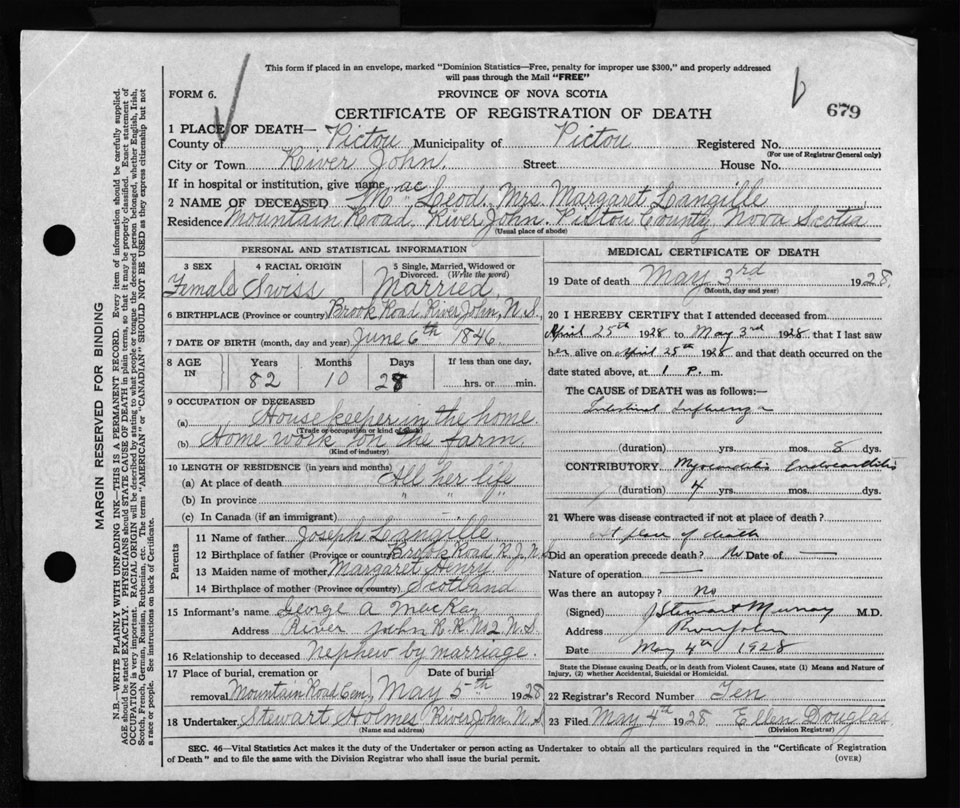 This form if placed in an envelope, marked "Dominion Statistics—Free, penalty for improper use $300," and properly addressed
will pass through the Mail "FREE"
FORM 6.
PROVINCE OF NOVA SCOTIA
CERTIFICATE OF REGISTRATION OF DEATH
679
1 PLACE OF DEATH—
County of Pictou Municipality of Pictou Registered No.
(For use of Registrar General only)
City or Town River John Street House No.
If in hospital or institution, give name
2 NAME OF DECEASED Mac Leod, Mrs Margaret Langille
Residence Mountain Road River John. Pictou County Nova Scotia
(Usual place of abode)
PERSONAL AND STATISTICAL INFORMATION
3 SEX 4 RACIAL ORIGIN 5 Single, Married, Widowed or Divorced. (Write the word)
Female Swiss Married
6 BIRTHPLACE (Province or country) Brook Road, River John, N.S.,
7 DATE OF BIRTH (month, day and year) June 6th 1846
8 AGE IN Years Months Days If less than one day,
82 10 28 hrs. or min.
9 OCCUPATION OF DECEASED
(a) Housekeeper in the home.
(Trade or occupation or kind of work)
(b) Home work on the farm
(Kind of industry)
10 LENGTH OF RESIDENCE (in years and months)
(a) At place of death All her life
(b) In province " " "
(c) In Canada (if an immigrant)
Parents
11 Name of father Joseph Langille
12 Birthplace of father (Province or country) Brook Road R.J. N.S.
13 Maiden name of mother Margaret Henry
14 Birthplace of mother (Province or country) Scotland
15 Informant's name George A MacKay
Address River John R.R. No 2, N.S.
16 Relationship to deceased nephew by marriage.
17 Place of burial, cremation or removal Mountain Road Cem, Date of burial May 5th 1928
18 Undertaker Stewart Holmes River John N.S.
(Name and address)
MEDICAL CERTIFICATE OF DEATH
19 Date of death May 3rd 1928
(Month, day and year)
20 I HEREBY CERTIFY that I attended deceased from
April 25th 1928 to May 3rd 1928 that I last saw
her alive on April 25th 1928 and that death occurred on the
date stated above, at 1 P. m.
The CAUSE OF DEATH was as follows:
Intestinal Influenza
(duration) yrs. mos. 8 dys.
CONTRIBUTORY Myocarditis Endocarditis
(duration) 4 yrs. mos. dys.
21 Where was disease contracted if not at place of death?
at place of death
Did an operation precede death? No Date of —
Nature of operation —
Was there an autopsy? No
(Signed) J Stewart Murray M.D.
Address River John
Date May 4th 1928
State the Disease causing Death, or in death from Violent Causes, state (1) Means and Nature of
Injury, (2) whether Accidental, Suicidal or Homicidal.
22 Registrar's Record Number Ten
23 Filed May 4th 1928 Ellen Douglas
(Division Registrar)
SEC. 46—Vital Statistics Act makes it the duty of the Undertaker or person acting as Undertaker to obtain all the particulars required in the "Certificate of Registration
of Death" and to file the same with the Division Registrar who shall issue the burial permit.
(OVER)
MARGIN RESERVED FOR BINDING
N.B.—WRITE PLAINLY WITH UNFADING INK—THIS IS A PERMANENT RECORD. Every item of information should be carefully supplied.
AGE should be stated EXACTLY. PHYSICIANS should STATE CAUSE OF DEATH in plain terms, so that it may be properly classified. Exact statement of
OCCUPATION is very important. RACIAL ORIGIN will be described by stating to what people or tongue the deceased person belonged, whether English, Irish,
Scotch, French, German, Russian, Ruthenian, etc. The terms "AMERICAN" or "CANADIAN" SHOULD NOT BE USED as they express citizenship but not
a race or people. See instructions on back of Certificate.